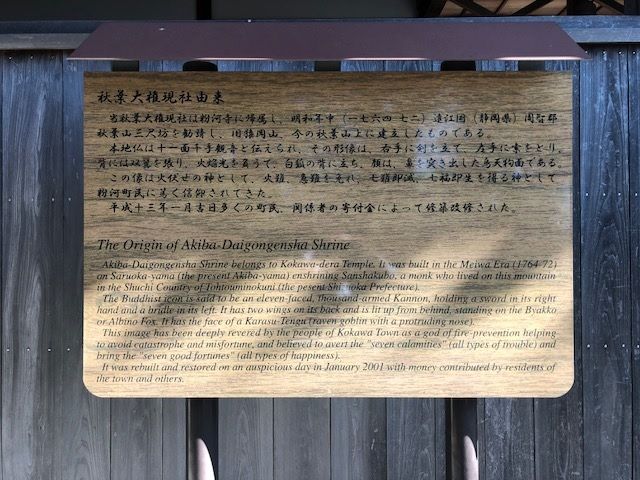 秋葉大権現社由来
当秋葉大権現社は粉河寺に帰属し、明和年中（一七六四-七二）遠江国（静岡県）周智郡
秋葉山三尺坊を勧請し、旧猿岡山、今の秋葉山上に建立したものである。
本地仏は十一面千手観音と伝えられ、その形像は、右手に剣を立て、左手に索をとり、
背には双翼を張り、火焔光を負うて、白狐の背に立ち、顔は、鼻を突き出した烏天狗面である。
この像は火伏せの神として、火難、悪難を免れ、七難即滅、七福即生を得る神として
粉河町民に篤く信仰されてきた。
平成十三年一月吉日多くの町民、関係者の寄付金によって修築改修された。
The Origin of Akiba-Daigongensha Shrine
Akiba-Daigongensha Shrine belongs to Kokawa-dera Temple. It was built in the Meiwa Era (1764-72)
on Saruoka-yama (the present Akiba-yama) enshrining Sanshakubo, a monk who lived on this mountain
in the Shuchi Country of Tohtouminokuni (the pesent Shizuoka Prefecture).
The Buddhist icon is said to be an eleven-faced, thousand armed Kannon, holding a sword in its right
hand and a bridle in its left. It has two wings on its back and is lit up from behind, standing on the Byakko
or Albino Fox. It has the face of a Karasu-Tengu (raven goblin with a protruding nose).
This image has been deeply revered by the people of Kokawa Town as a god of fire-prevention helping
to avoid catastrophe and misfortune, and believed to avert the "seven calamities" (all types of trouble) and
bring the "seven good fortunes" (all types of happiness).
It was rebuilt and restored on an auspicious day in January 2001 with money contributed by residents of
the town and others.